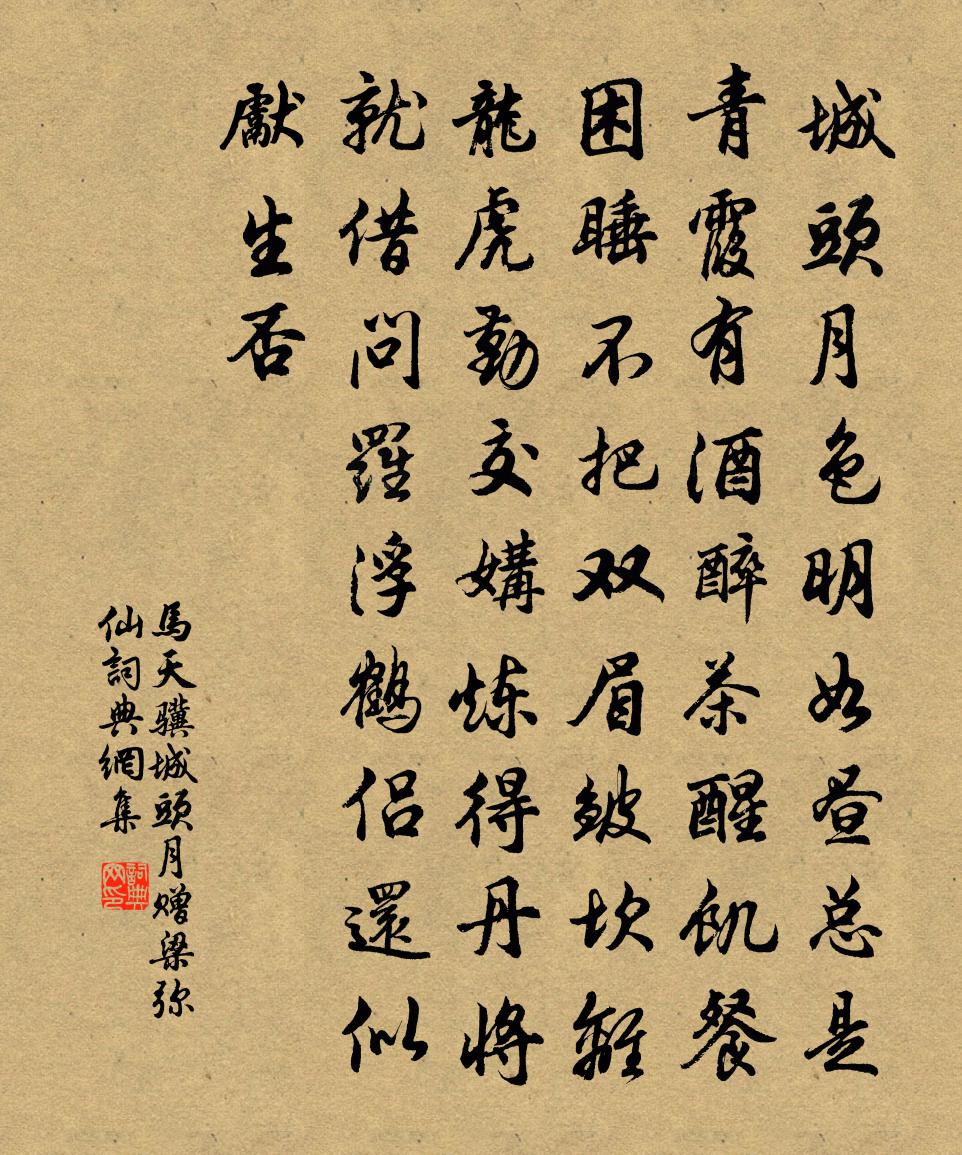 城頭月色明如昼总是
青霞有酒醉茶醒飢餐
困睡不把双眉皱坎離
龍虎勤交媾炼得丹將
就借問羅浮鶴侣還似
獻生否
馬天骥城頭月赠梁弥
仙詞典網集
詞典
网印